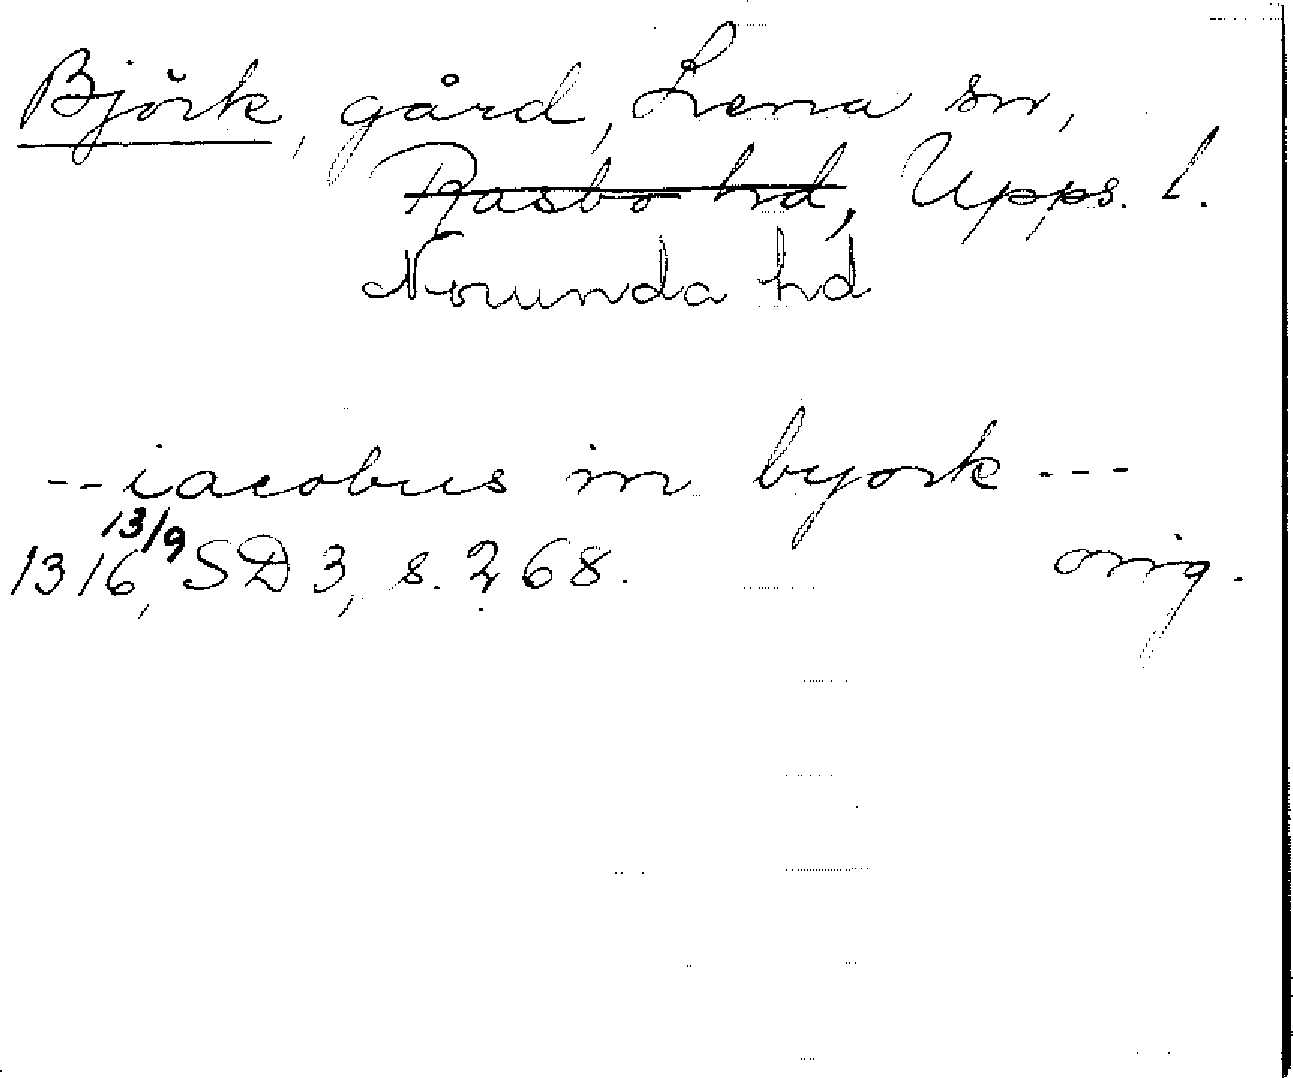 Björk, gård, Lena sn,
Rasbo hd, Upps. l.
Norunda hd
-- iacobus in byork ---
13/9
1316, SD 3, s. 268. orig.